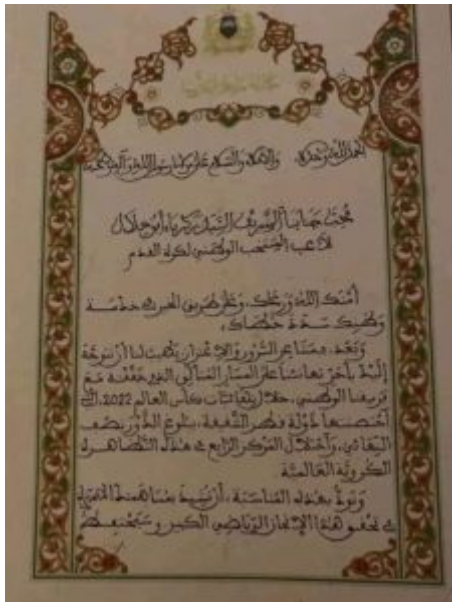 الحمد لله وحده، والصلاة والسلام على مولانا رسول الله وآله وصحبه
محب جنابنا الشريف السيد زكرياء أبو خلال
لاعب المنتخب الوطني لكرة القدم
أمنك الله ورعاك، وعلى طريق الخير في خدمة
وطنك سدد خطاك،
وبعد، فمن السرور والاعتزاز بك أن نتوجه
إليك بأحر تهانئنا على المسار المثالي الذي حققته مع
فريقنا الوطني، خلال نهائيات كأس العالم 2022، التي
احتضنتها دولة قطر الشقيقة، ببلوغ الدور نصف
النهائي، واحتلال المركز الرابع في هذه التظاهرة
الكروية العالمية
ونود بهذه المناسبة، أن نشيد بمساهمتك
في تحقيق هذا الإنجاز الرياضي الكبير